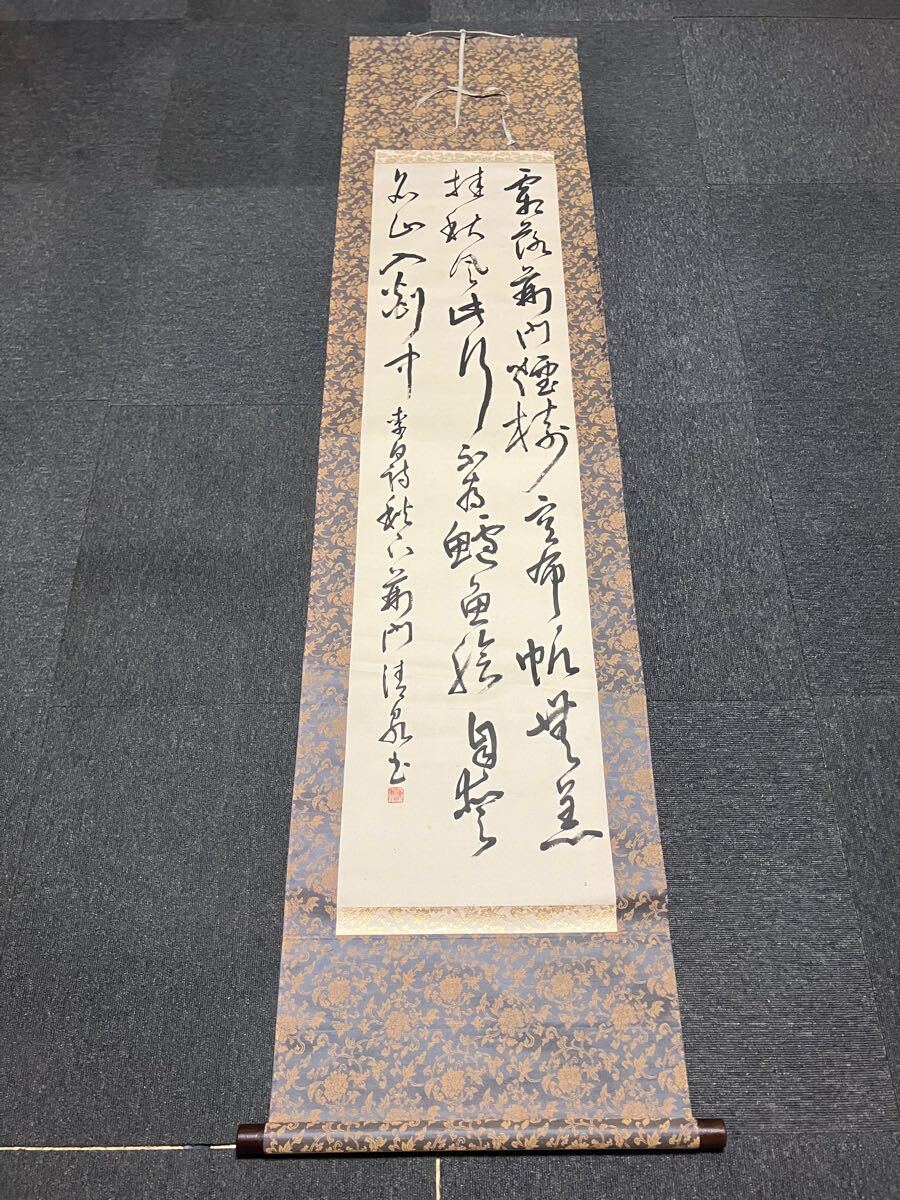 霜落荊門煙樹空布帆無恙
挂秋風此行不為鱸魚鱠自愛
名山入剡中 李白詩秋下荊門 清泉書